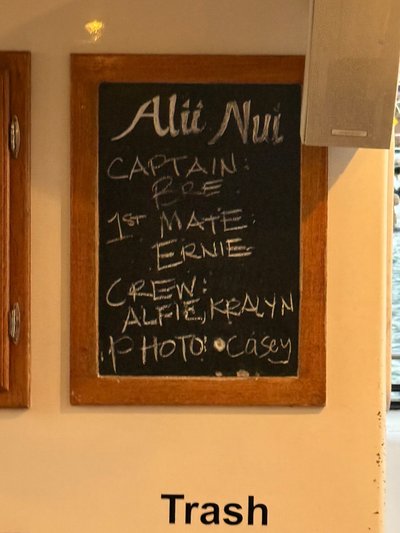 Alii Nui
CAPTAIN:
BRE
1ST MATE:
ERNIE
CREW:
ALFIE, KRALYN
PHOTO: Casey
Trash